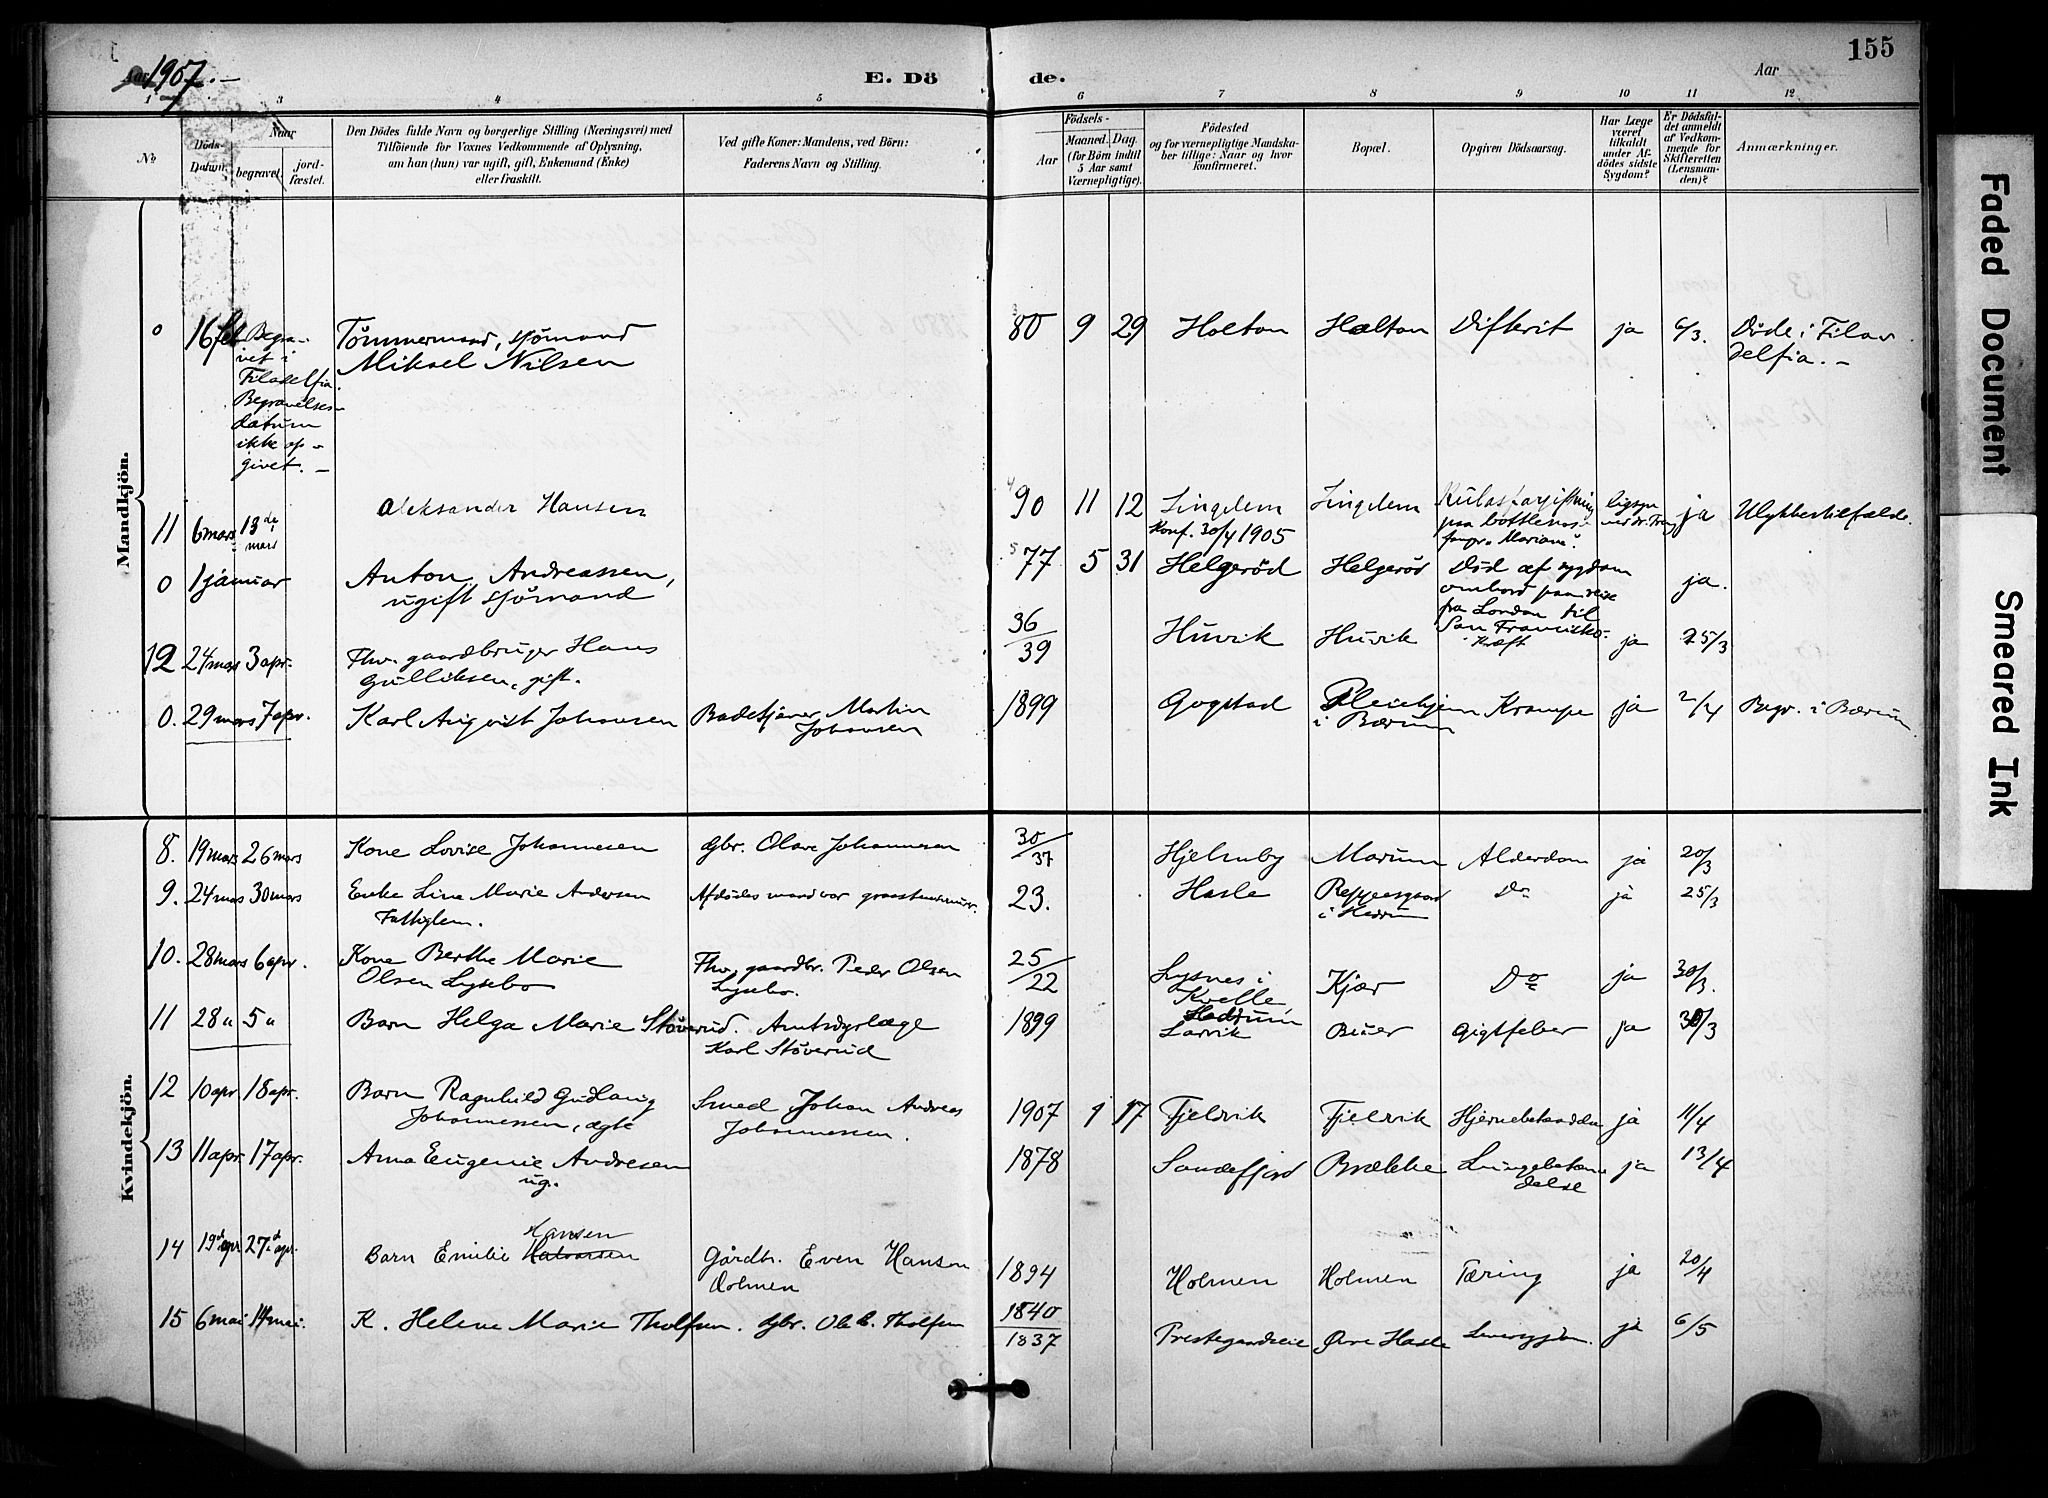 155
Aar 1907.-
E. Dö
de.
Aar
1
3
4
5
6
7
8
9
10
11
12
No
Döds-
Datum.
Naar
begravet.
jord-
fæstet.
Den Dödes fulde Navn og borgerlige Stilling (Næringsvei) med
Tilföiende for Voxnes Vedkommende af Oplysning,
om han (hun) var ugift, gift, Enkemand (Enke)
eller fraskilt.
Ved gifte Koner: Mandens, ved Börn:
Faderens Navn og Stilling.
Födsels-
Aar
Maaned.
Dag.
(for Börn indtil
5 Aar samt
Værnepligtige).
Födested
og for værnepligtige Mandska-
ber tillige: Naar og hvor
konfirmeret.
Bopæl.
Opgiven Dödsaarsag.
Har Læge
været
tilkaldt
under Af-
dödes sidste
Sygdom?
Er Dödsfal-
det anmeldt
af Vedkom-
mende for
Skifteretten
(Lensman-
den)?
Anmærkninger.
Mandkjön.
0 16 feb Begra-
vet i
Filadelfia.
Begravelses-
datum
ikke op-
givet. -
Tömmermand, sjömand
Mikael Nilsen
80 9 29 Holtan Haltan Difterit ja 6/3. Döde i Fila
delfia. -
11 6 mars 13de
mars
Aleksander Hansen
90 11 12 Lingelem Lingelem Kulosforgiftning
Konf. 30/4 1905
paa bottlenos-
fangr. "Mariane".
ja Ulykkestilfælde.
0 1 januar Anton Andreassen,
ugift sjömand
77 5 31 Helgeröd Helgeröd Död af sygdom
ombord paa reise
fra London til
San Francisko.
ja.
12 24 mars 3 apr. Fhv. gaardbruger Hans
Gulliksen, gift.
36/39 Huvik Huvik Kræft ja 25/3
0. 29 mars 7 apr. Karl August Johansen Badetjener Martin
Johansen
1899 Gogstad Pleiehjem
i Bærum
Krampe ja 2/4 Begr. i Bærum
Kvindekjön.
8. 19 mars 26 mars Kone Lovise Johannesen Gbr. Olave Johannesen 30/37 Hjelmby Marum Alderdom ja 20/3
9. 24 mars 30 mars Enke Lina Marie Andersen
Fattiglem.
Afdödes mand var
23. Hasle Reppesgaard
i Hedrum
Do ja 25/3
10. 28 mars 6 apr. Kone Berthe Marie
Olsen Lysebo
Fhv. gaardbr. Peder Olsen
Lysebo.
25/22 Lysnes i
Kvelle
Hedrum
Kjær Do ja 30/3.
11 28 " 5 " Barn Helga Marie Stöverud. Amtsdyrlæge
Karl Stöverud
1899 Larvik Buer Gigtfeber ja 30/3
12 10 apr. 18 apr. Barn Ragnhild Gudlaug
Johannessen, ægte
Smed Johan Andreas
Johannessen.
1907 1 17 Fjeldvik Fjeldvik Hjernebetændelse ja 11/4
13 11 apr. 17 apr. Anna Eugenie Andresen
ug.
1878 Sandefjord Brække Lungebetæn-
delse
ja 13/4
14 19d apr 27d apr. Barn Emilie Halvorsen
Hansen
Gårdbr. Even Hansen
Holmen
1894 Holmen Holmen Tæring ja 20/4
15 6 mai 14 mai. K. Helene Marie Tholfsen. Gbr. Ole C. Tholfsen
1840/1837 Prestegaardseie Övre Hasle Leversygdom. ja 6/5
Faded Document
Smeared Ink